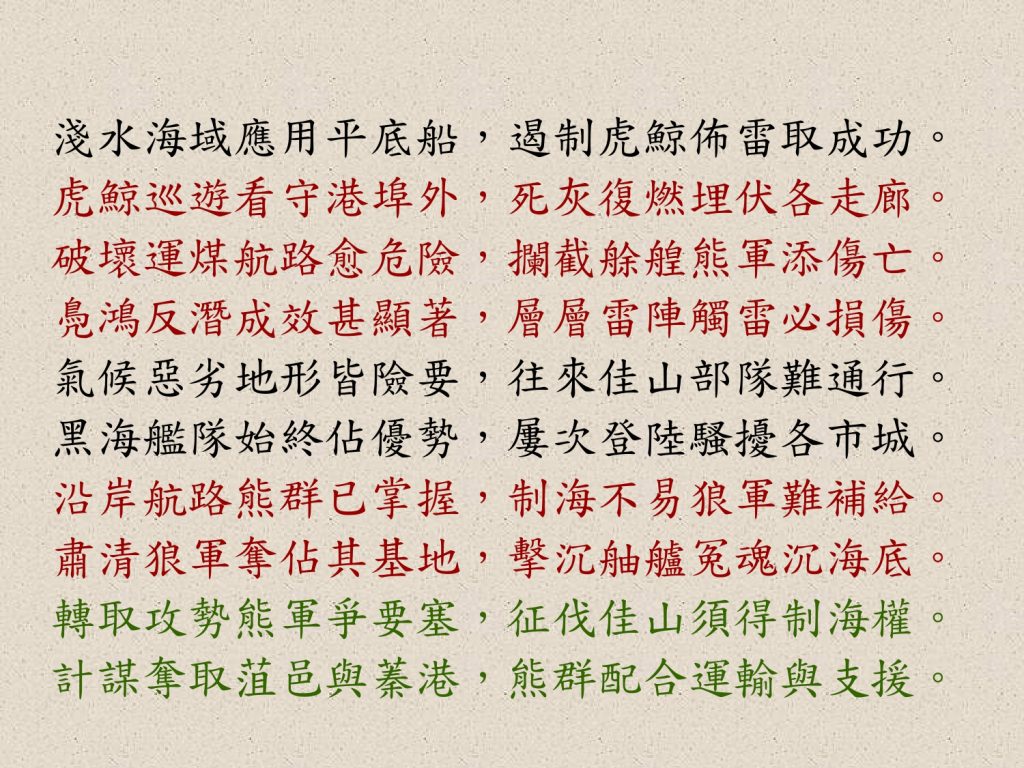 淺水海域應用平底船，遏制虎鯨佈雷取成功。
虎鯨巡遊看守港埠外，死灰復燃埋伏各走廊。
破壞運煤航路愈危險，攔截艅艎熊軍添傷亡。
鳧鴻反潛成效甚顯著，層層雷陣觸雷必損傷。
氣候惡劣地形皆險要，往來佳山部隊難通行。
黑海艦隊始終佔優勢，屢次登陸騷擾各市城。
沿岸航路熊群已掌握，制海不易狼軍難補給。
肅清狼軍奪佔其基地，擊沉舳艫冤魂沉海底。
轉取攻勢熊軍爭要塞，征伐佳山須得制海權。
計謀奪取菹邑與蓁港，熊群配合運輸與支援。